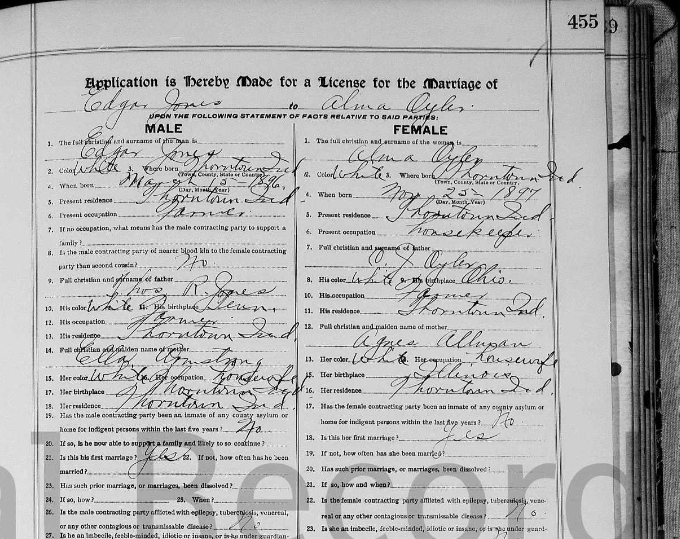 455
Application is Hereby Made for a License for the Marriage of
Edgar Jones to Alma Oyler
UPON THE FOLLOWING STATEMENT OF FACTS RELATIVE TO SAID PARTIES:
MALE
1. The full christian and surname of the man is
Edgar Jones
2. Color White 3. Where born Thorntown Ind
(Town, County, State or Country)
4. When born 1896
(Day, Month, Year)
5. Present residence Thorntown Ind
6. Present occupation Farmer
7. If no occupation, what means has the male contracting party to support a
family?
8. Is the male contracting party of nearer blood kin to the female contracting
party than second cousin? No
9. Full christian and surname of father
R. Jones
10. His color White 11. His birthplace
12. His occupation Farmer
13. His residence Thorntown Ind.
14. Full christian and maiden name of mother
Ella Armstrong
15. Her color White 16. Her occupation housewife
17. Her birthplace Thorntown Ind
18. Her residence Thorntown Ind.
19. Has the male contracting party been an inmate of any county asylum or
home for indigent persons within the last five years? No.
20. If so, is he now able to support a family and likely to so continue?
21. Is this his first marriage? Yes 22. If not, how often has he been
married?
23. Has such prior marriage, or marriages, been dissolved?
24. If so, how? 25. When?
26. Is the male contracting party afflicted with epilepsy, tuberculosis, venereal,
or any other contagious or transmissable disease? No
27. Is he an imbecile, feeble-minded, idiotic or insane, or is he under guardian-
FEMALE
1. The full christian and surname of the woman is
Alma Oyler
2. Color White 3. Where born Thorntown Ind
(Town, County, State or Country)
4. When born Nov 25 1897
(Day, Month, Year)
5. Present residence Thorntown Ind.
6. Present occupation housekeeper
7. Full christian and surname of father
Oyler
8. His color White 9. His birthplace Ohio.
10. His occupation Farmer
11. His residence Thorntown Ind.
12. Full christian and maiden name of mother
Agnes
13. Her color White Her occupation housewife
15. Her birthplace Illinois
16. Her residence Thorntown Ind.
17. Has the female contracting party been an inmate of any county asylum or
home for indigent persons within the last five years? No
18. Is this her first marriage? Yes
19. If not, how often has she been married?
20. Has such prior marriage, or marriages, been dissolved?
21. If so, how and when?
22. Is the female contracting party afflicted with epilepsy, tuberculosis, vene-
real or any other contagious or transmissable disease? No.
23. Is she an imbecile, feeble-minded, idiotic or insane, or is she under guard-
al Record